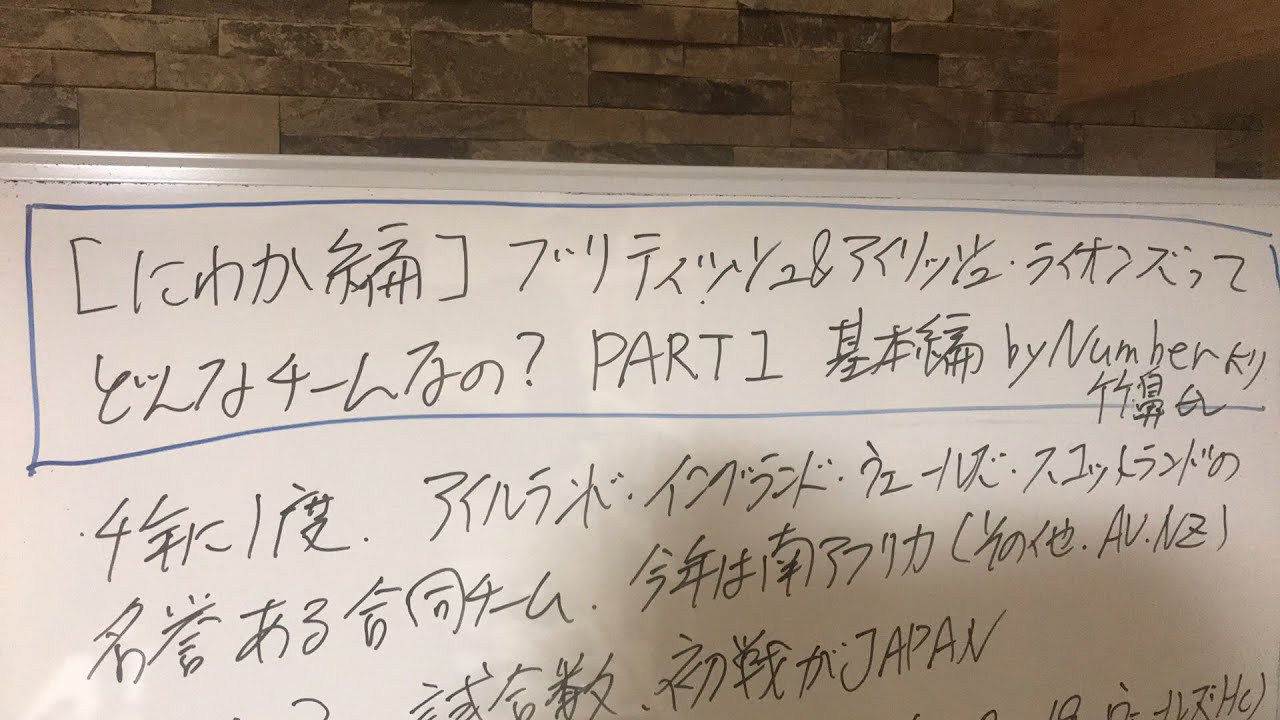 [にわか編] ブリティッシュ&アイリッシュ・ライオンズって
どんなチームなの? PART1 基本編 by Numberより
竹鼻氏
・4年に1度. アイルランド・イングランド・ウェールズ・スコットランドの
名誉ある合同チーム. 今年は南アフリカ(その他. AU.NZ)
試合数、初戦がJAPAN
ウェールズHC)